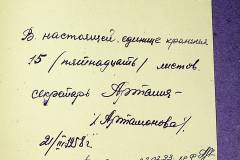 В настоящей единице хранения
15 (пятнадцать) листов.
секретарь
/Артамонова/.
21/III-1958 г.